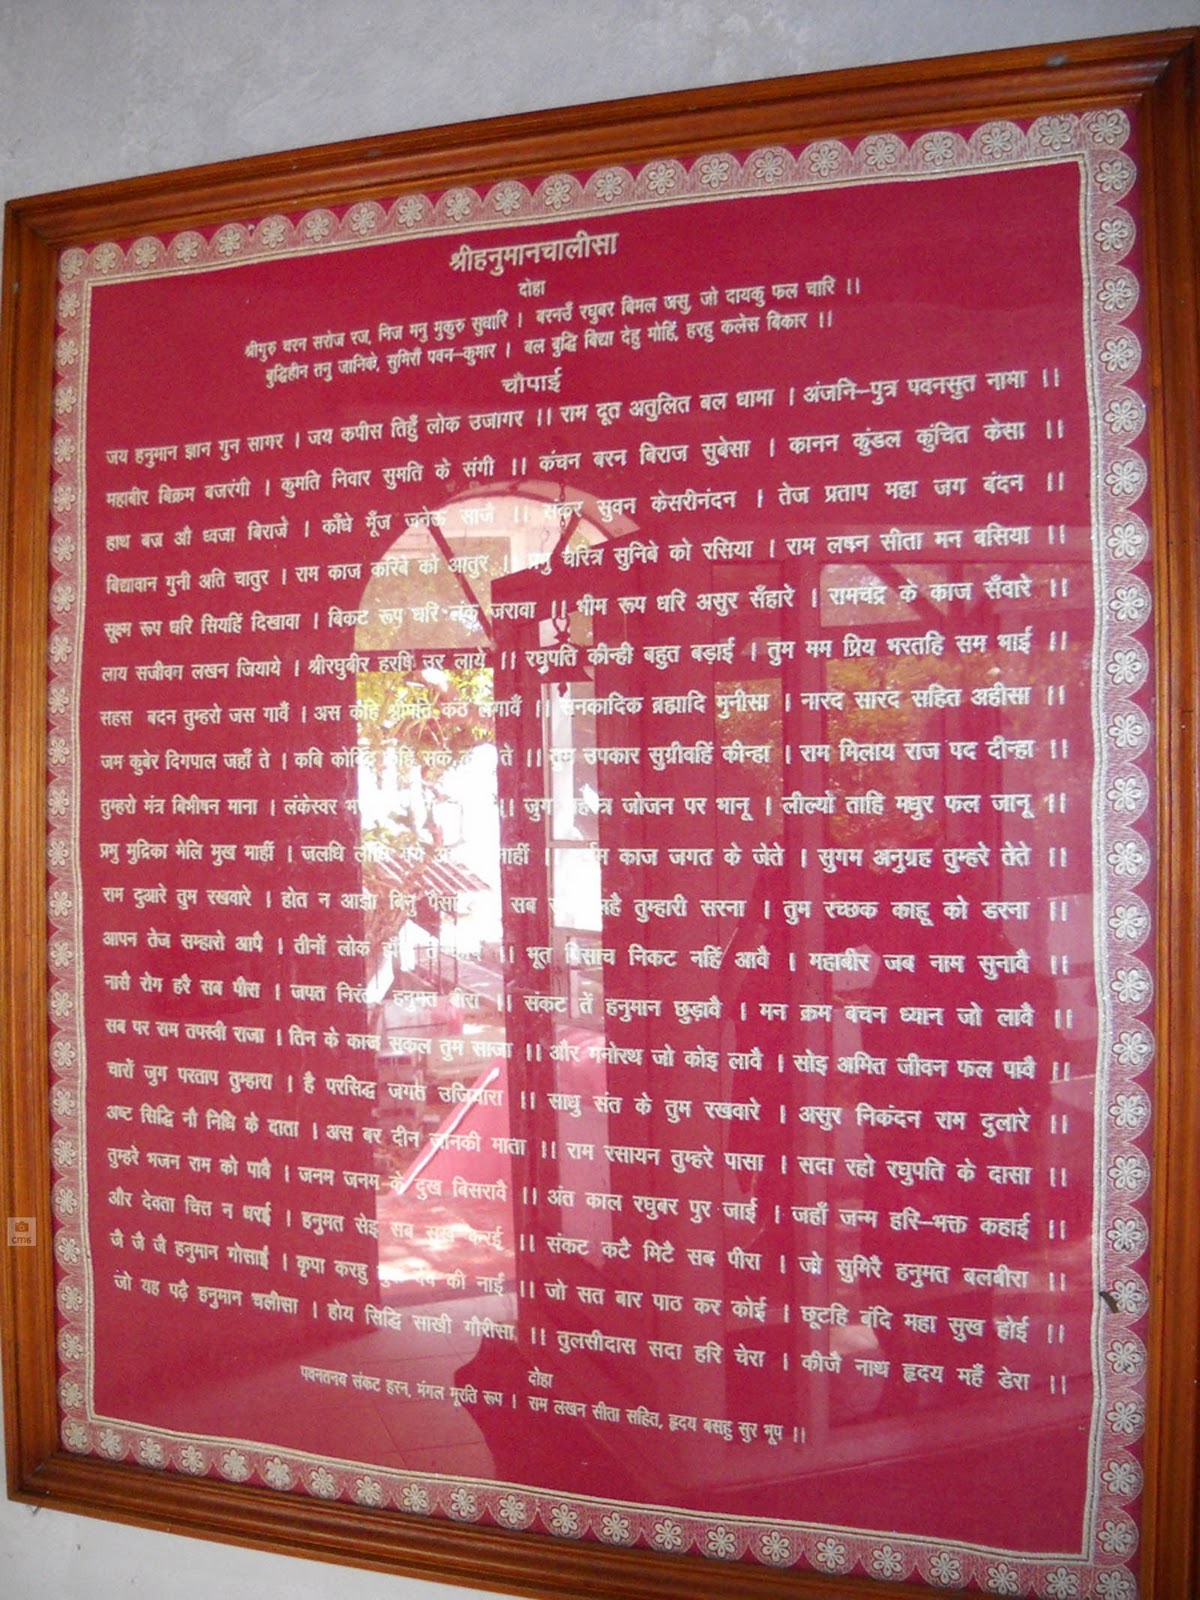 श्रीहनुमानचालीसा
दोहा
श्रीगुरु चरन सरोज रज, निज मनु मुकुरु सुधारि । बरनउँ रघुबर बिमल जसु, जो दायकु फल चारि ।।
बुद्धिहीन तनु जानिके, सुमिरौ पवन-कुमार । बल बुद्धि बिद्या देहु मोहिं, हरहु कलेस बिकार ।।
चौपाई
जय हनुमान ज्ञान गुन सागर । जय कपीस तिहुँ लोक उजागर ।। राम दूत अतुलित बल धामा । अंजनि-पुत्र पवनसुत नामा ।।
महाबीर बिक्रम बजरंगी । कुमति निवार सुमति के संगी ।। कंचन बरन बिराज सुबेसा । कानन कुंडल कुंचित केसा ।।
हाथ बज्र औ ध्वजा बिराजे । काँधे मूँज जनेऊ साजै ।। संकर सुवन केसरीनंदन । तेज प्रताप महा जग बंदन ।।
बिद्यावान गुनी अति चातुर । राम काज करिबे को आतुर ।। प्रभु चरित्र सुनिबे को रसिया । राम लषन सीता मन बसिया ।।
सूक्ष्म रूप धरि सियहिं दिखावा । बिकट रूप धरि लंक जरावा ।। भीम रूप धरि असुर सँहारे । रामचंद्र के काज सँवारे ।।
लाय सजीवन लखन जियाये । श्रीरघुबीर हरषि उर लाये ।। रघुपति कीन्ही बहुत बड़ाई । तुम मम प्रिय भरतहि सम भाई ।।
सहस बदन तुम्हरो जस गावैं । अस कहि श्रीपति कंठ लगावैं ।। सनकादिक ब्रह्मादि मुनीसा । नारद सारद सहित अहीसा ।।
जम कुबेर दिगपाल जहाँ ते । कबि कोबिद सके ते ।। तुम उपकार सुग्रीवहिं कीन्हा । राम मिलाय राज पद दीन्हा ।।
तुम्हरो मंत्र बिभीषन माना । लंकेस्वर ।। जुग जोजन पर भानू । लील्यो ताहि मधुर फल जानू ।।
प्रभु मुद्रिका मेलि मुख माहीं । जलधि लाँघि गये नाहीं । काज जगत के जेते । सुगम अनुग्रह तुम्हरे तेते ।।
राम दुआरे तुम रखवारे । होत न आज्ञा बिनु पैसारे सब लहै तुम्हारी सरना । तुम रच्छक काहू को डरना ।।
आपन तेज सम्हारो आपै । तीनों लोक ।। भूत पिसाच निकट नहिं आवै । महाबीर जब नाम सुनावै ।।
नासै रोग हरै सब पीरा । जपत निरंतर हनुमत बीरा ।। संकट तें हनुमान छुड़ावै । मन क्रम बचन ध्यान जो लावै ।।
सब पर राम तपस्वी राजा । तिन के काज सकल तुम साजा ।। और मनोरथ जो कोइ लावै । सोइ अमित जीवन फल पावै ।।
चारों जुग परताप तुम्हारा । है परसिद्ध जगत उजियारा ।। साधु संत के तुम रखवारे । असुर निकंदन राम दुलारे ।।
अष्ट सिद्धि नौ निधि के दाता । अस बर दीन जानकी माता ।। राम रसायन तुम्हरे पासा । सदा रहो रघुपति के दासा ।।
तुम्हरे भजन राम को पावै । जनम जनम के दुख बिसरावै ।। अंत काल रघुबर पुर जाई । जहाँ जन्म हरि-भक्त कहाई ।।
और देवता चित्त न धरई । हनुमत सेइ सब सुख करई ।। संकट कटै मिटै सब पीरा । जो सुमिरै हनुमत बलबीरा ।।
जै जै जै हनुमान गोसाईं । कृपा करहु की नाईं ।। जो सत बार पाठ कर कोई । छूटहि बंदि महा सुख होई ।।
जो यह पढ़ै हनुमान चलीसा । होय सिद्धि साखी गौरीसा ।। तुलसीदास सदा हरि चेरा । कीजै नाथ हृदय महँ डेरा ।।
दोहा
पवनतनय संकट हरन, मंगल मूरति रूप । राम लखन सीता सहित, हृदय बसहु सुर भूप ।।